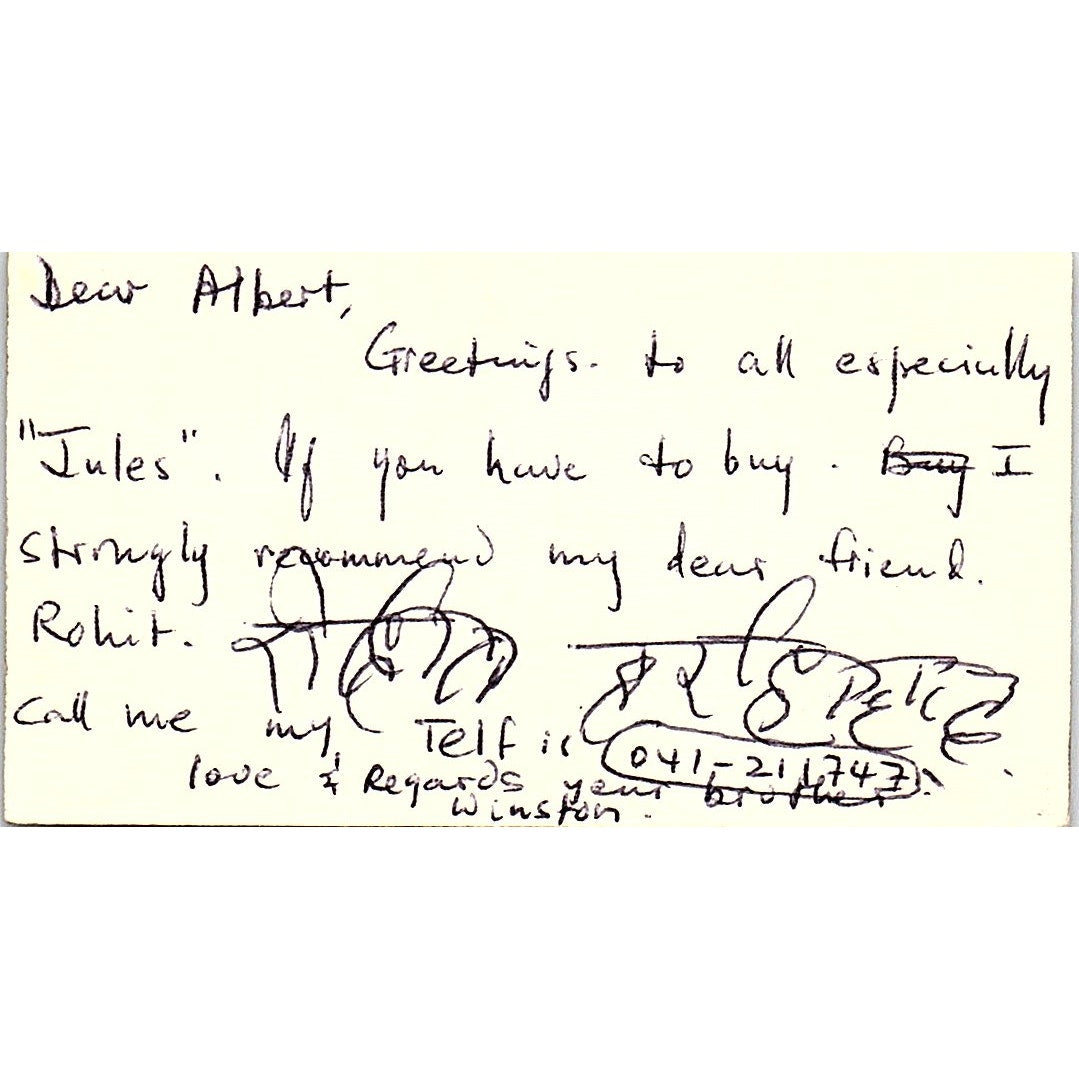 Dear Albert,
Greetings. to all especially
"Jules". If you have to buy. Buy I
strongly recommend my dear friend.
Rohit. रोहित
Call me my Telf is 041-211747.
love & Regards your brother
Winston.